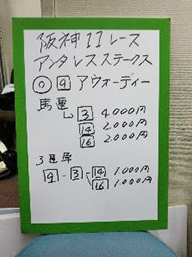 阪神11レース
アンタレスステークス
◎ 9 アウォーディー
馬連
3 4000円
14 2000円
16 2000円
3連単
9-3-14 1000円
16 1000円